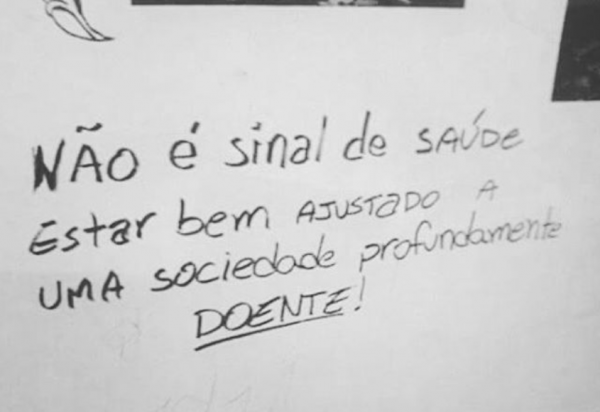 NÃO é sinal de SAÚDE
Estar bem AJUSTADO A
UMA sociedade profundamente
DOENTE!